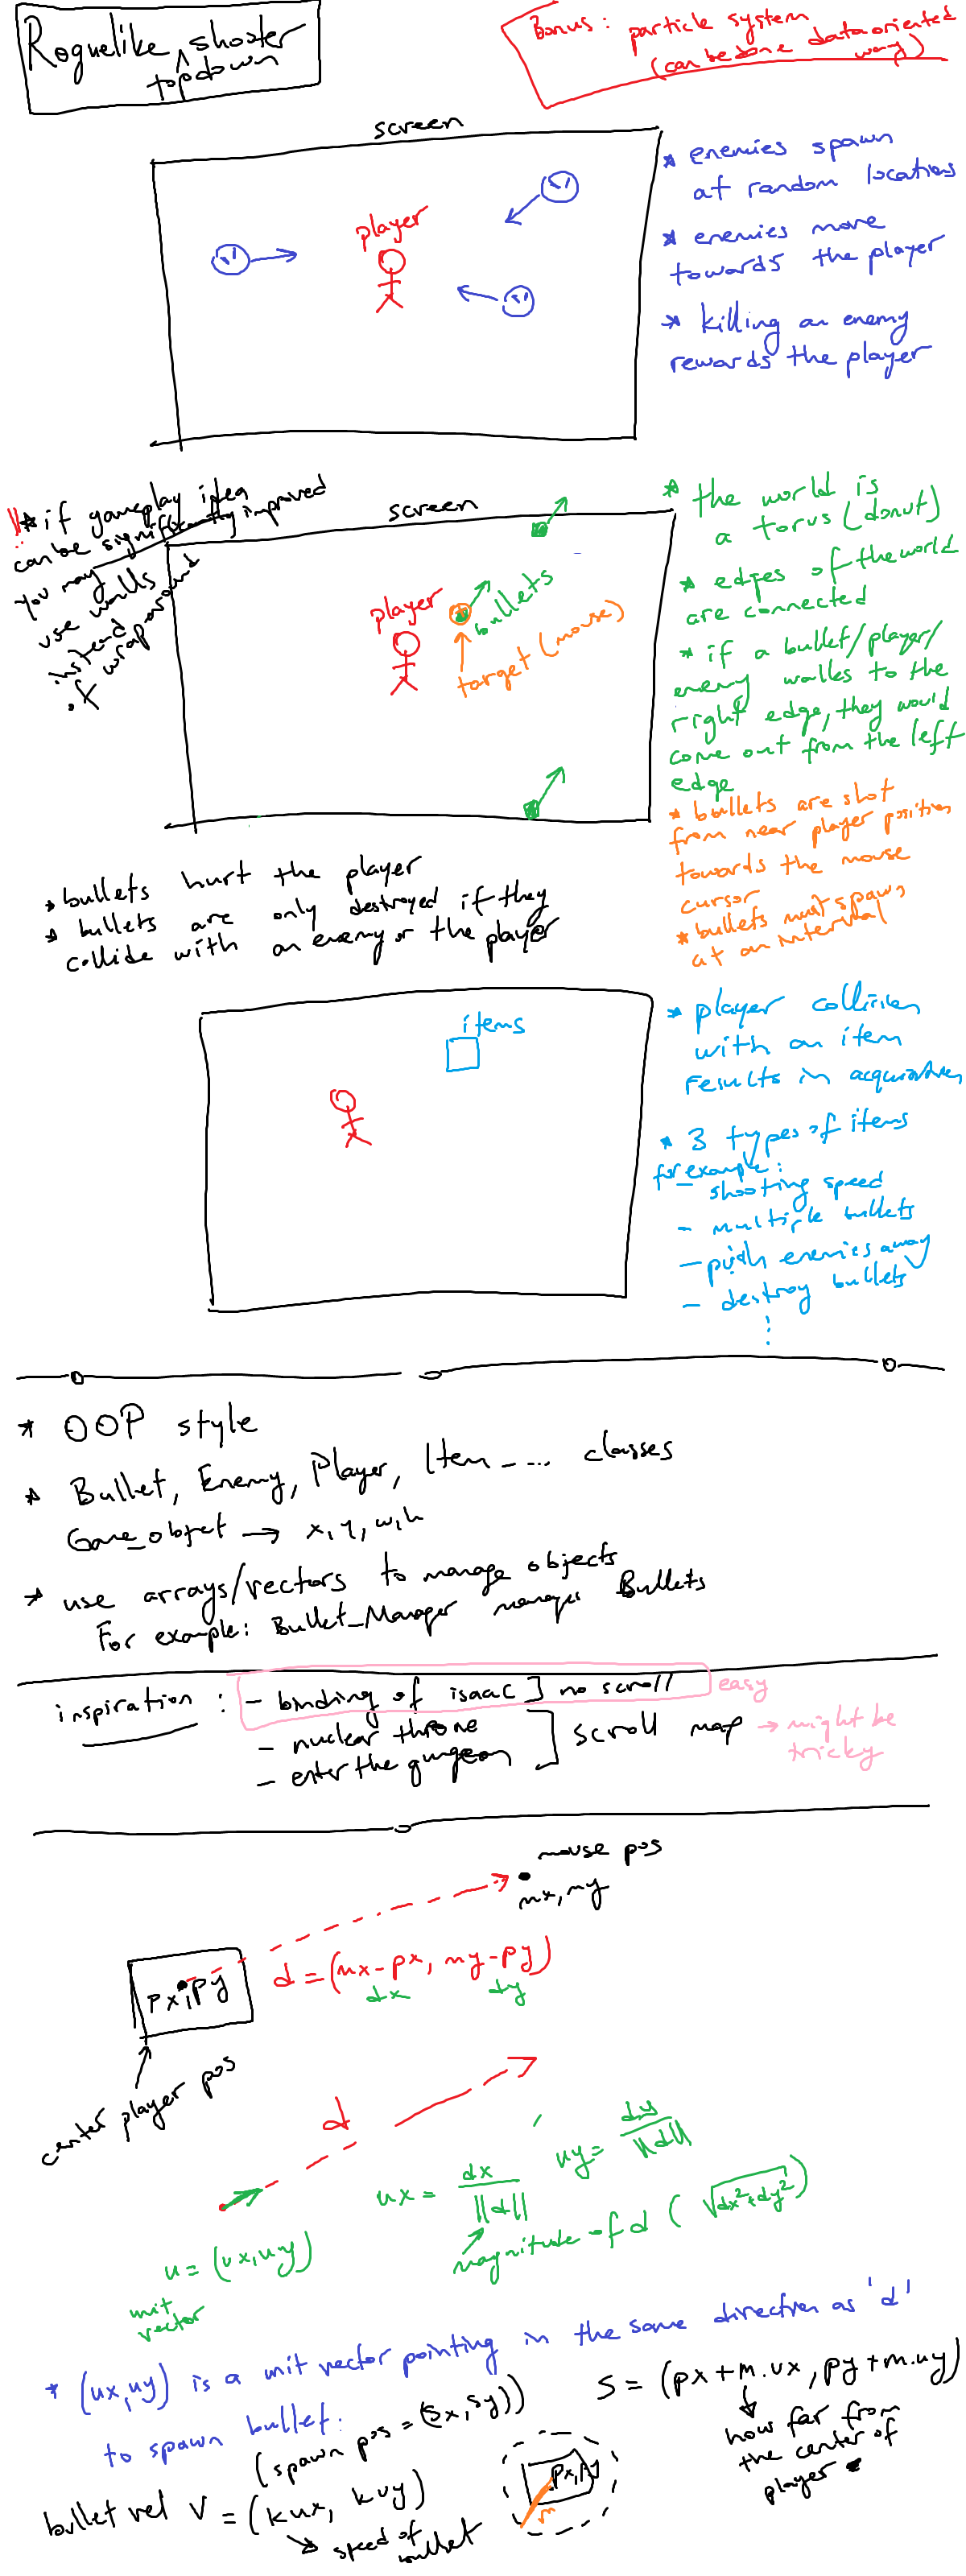 Roguelike ^ shooter
topdown
Bonus: particle system
(can be done data oriented
way)
screen
player
* enemies spawn
at random locations
* enemies move
towards the player
* killing an enemy
rewards the player
!! * if gameplay idea
can be significantly improved
you may
use walls
instead
of wraparound
screen
player
bullets
target (mouse)
* the world is
a torus (donut)
* edges of the world
are connected
* if a bullet/player/
enemy walks to the
right edge, they would
come out from the left
edge
* bullets are shot
from near player position
towards the mouse
cursor
* bullets must spawn
at an interval
* bullets hurt the player
* bullets are only destroyed if they
collide with an enemy or the player
items
* player collision
with an item
results in
* 3 types of items
for example:
- shooting speed
- multiple bullets
- push enemies away
- destroy bullets
* OOP style
* Bullet, Enemy, Player, Item - ... classes
Game_object → x, y, w, h
* use arrays/vectors to manage objects
For example: Bullet_Manager manages Bullets
inspiration : - binding of isaac ] no scroll easy
- nuclear throne
- enter the gungeon
] scroll map → might be
tricky
mouse pos
mx, my
px, py
d = (mx - px, my - py)
dx dy
center player pos
d
ux = dx / ||d||
uy = dy / ||d||
magnitude of d ( √dx² + dy² )
u = (ux, uy)
unit
vector
* (ux, uy) is a unit vector pointing in the same direction as 'd'
to spawn bullet:
(spawn pos = (sx, sy))
s = (px + m.ux, py + m.uy)
how far from
the center of
player
px, py
m
bullet vel v = (kux, kuy)
speed of
bullet